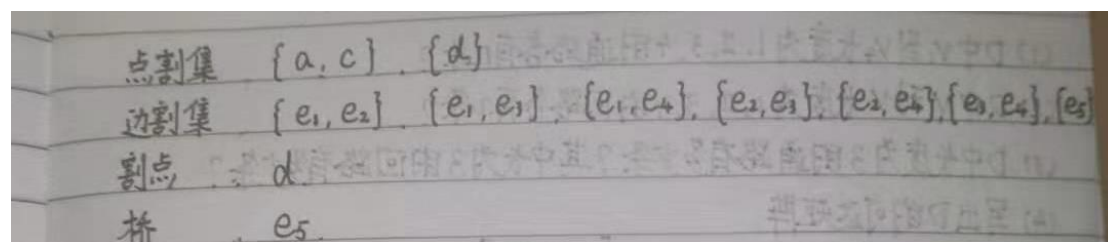 点割集 {a, c}, {d}
边割集 {e₁, e₂}, {e₁, e₃}, {e₁, e₄}, {e₂, e₃}, {e₂, e₄}, {e₃, e₄}, {e₅}
割点: d.
桥: e₅.